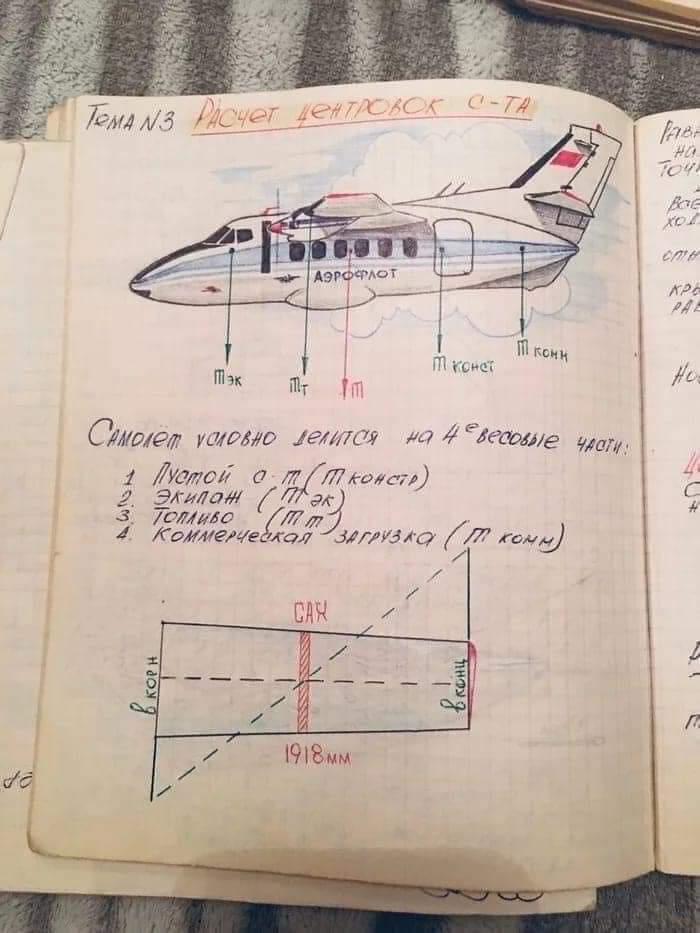 Тема N3 Расчет центровок с-та
Аэрофлот
m эк
m т
m
m конст
m комм
Самолёт условно делится на 4е весовые части:
1 Пустой с-т (m констр)
2. Экипаж (m эк)
3. Топливо (m т)
4. Коммерческая загрузка (m комм)
САХ
в корн
в конц
1918 мм